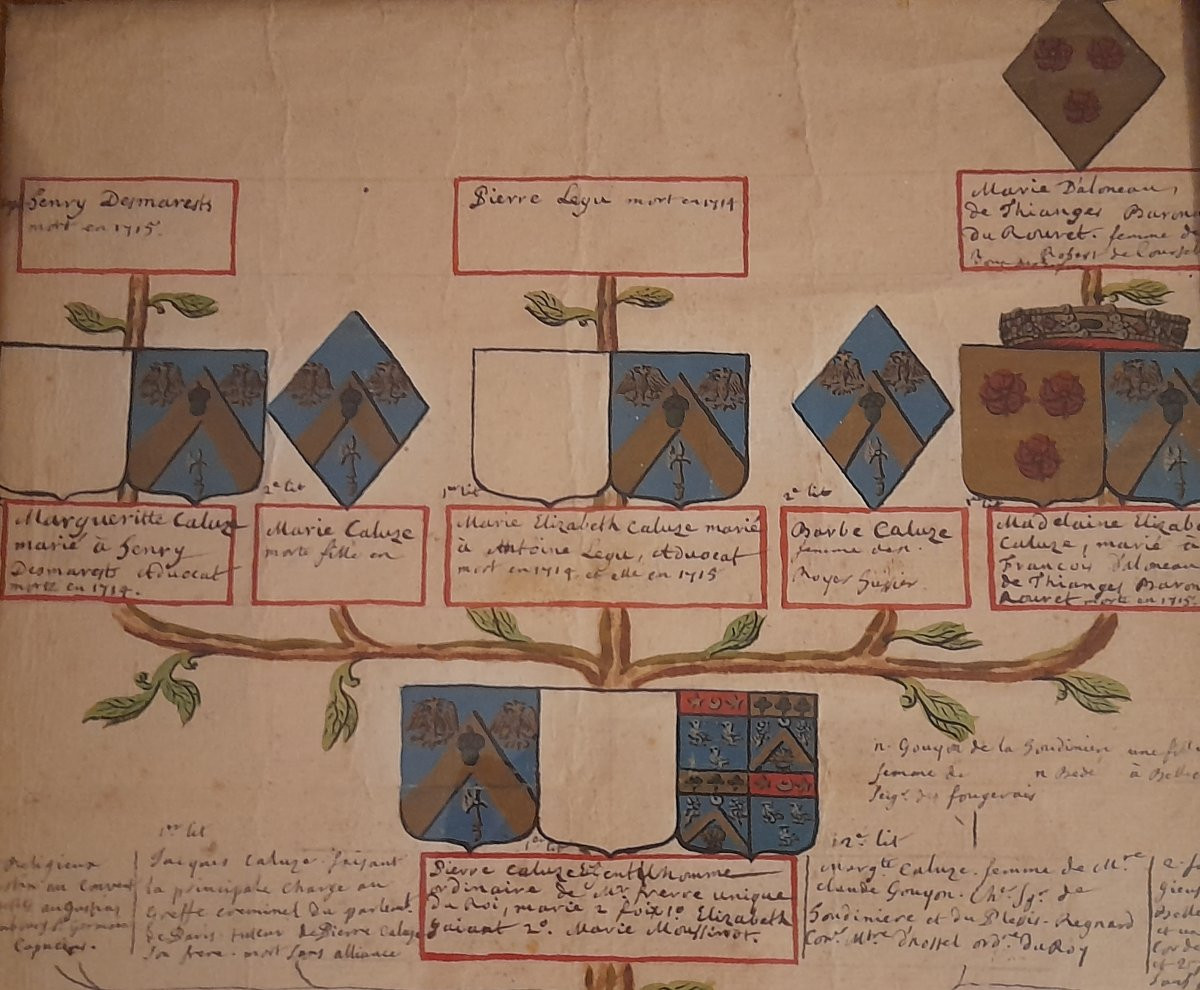 Henry Desmarests
mort en 1715.
Pierre Legu mort en 1714
Marie D'aloneau,
de Thianges Baron
du Rouret. femme de
Robert de
2e lit
1er lit
2e lit
1er lit
Margueritte Caluze
marié à henry
Desmarests Advocat
morte en 1714.
Marie Caluze
morte fille en
Marie Elizabeth Caluze marié
à Antoine Legu, Advocat
mort en 1714 et elle en 1715
Barbe Caluze
femme de n.
Royer
Madelaine Elizab
Caluze, marié à
Francois D'aloneau
de Thianges Baron
Rouret morte en 1715
n. Gouyon de la Houdiniere une fille
femme de n Bedé à
Seigr. des fougerais
1er lit
Religieux
au Couvent
augustins
Germain
Capucins.
Jacques Caluze faisant
la principale charge au
greffe criminel du parlent.
de Paris tuteur de Pierre Caluze
son frere mort sans alliance
1er lit
Pierre Caluze Gentilhomme
ordinaire de Mr frerre unique
du Roi, marie 2 foix 1o Elizabeth
Guirant 2o. Marie Moussinot.
2e lit
Margte Caluze femme de Mre
Claude Gouyon. Chr. Sgr. de
houdiniere et du Plessis-Regnard
Conr. Mtre d'hostel ordre du Roy